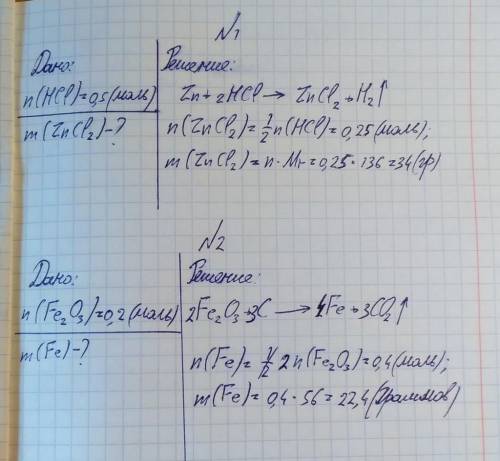 №1
Дано:
n(HCl)=0,5(моль)
m(ZnCl₂)-?
Решение:
Zn+2HCl → ZnCl₂+H₂↑
n(ZnCl₂)=½n(HCl)=0,25(моль);
m(ZnCl₂)=n·Mr=0,25·136=34(гр)
№2
Дано:
n(Fe₂O₃)=0,2(моль)
m(Fe)-?
Решение:
2Fe₂O₃+3C → 4Fe+3CO₂↑
n(Fe)= 2n(Fe₂O₃)=0,4(моль);
m(Fe)=0,4·56=22,4(граммов)